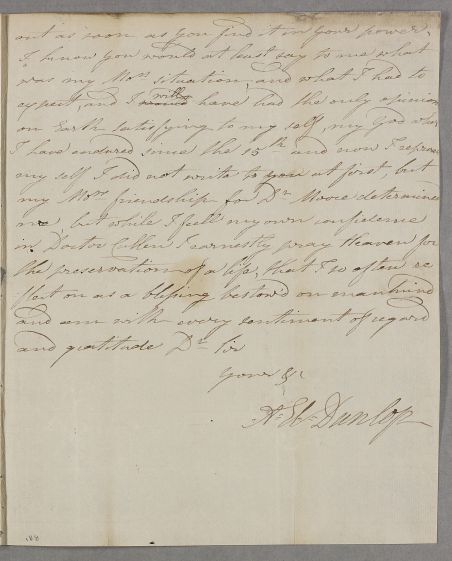 out as soon as you find it in your power,
I know you would at least say to me what
was my Mors situation, and what I had to
expect, and I will have had the only opinion
on Earth satisfying to my self, my God what
I have endured since the 15th and now I reproach
my self I did not write to you at first, but
my Mors friendship for Dr Moore determined
me but while I feel my own confidence
in Doctor Cullen I earnestly pray Heaven for
the preservation of a life, that I so often re
flect on as a blessing bestowd on mankind
and am with every sentiment of regard
and gratitude Dr Sir
yours &c
Dunlop
188